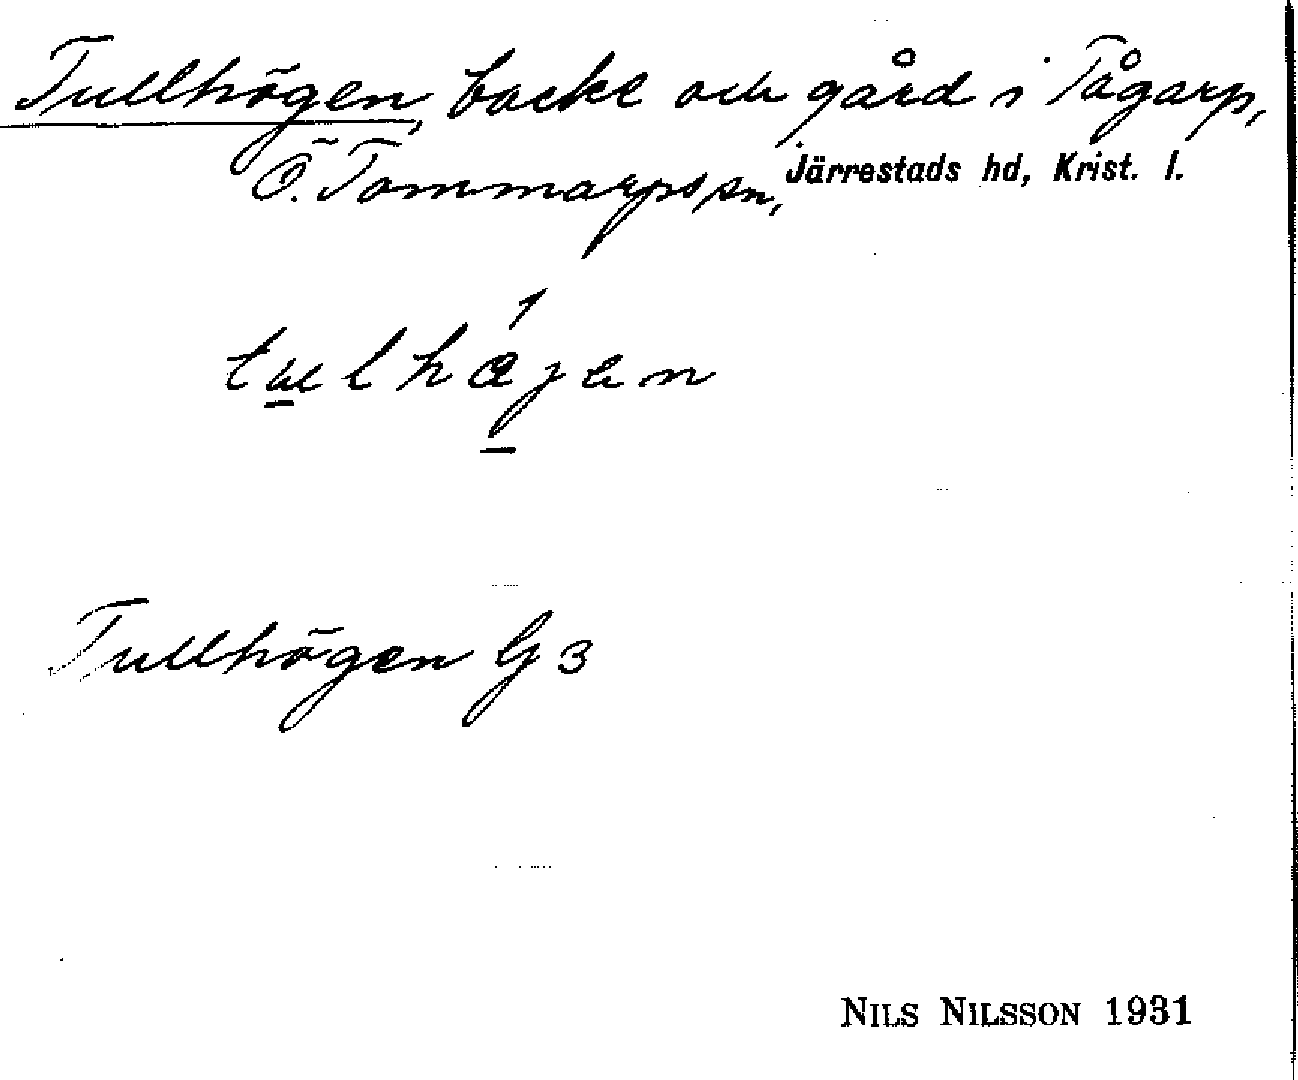 Tullhögen, backe och gård i Tågarp,
Ö. Tommarps sn, Järrestads hd, Krist. l.
Tullhögen G 3
NILS NILSSON 1931